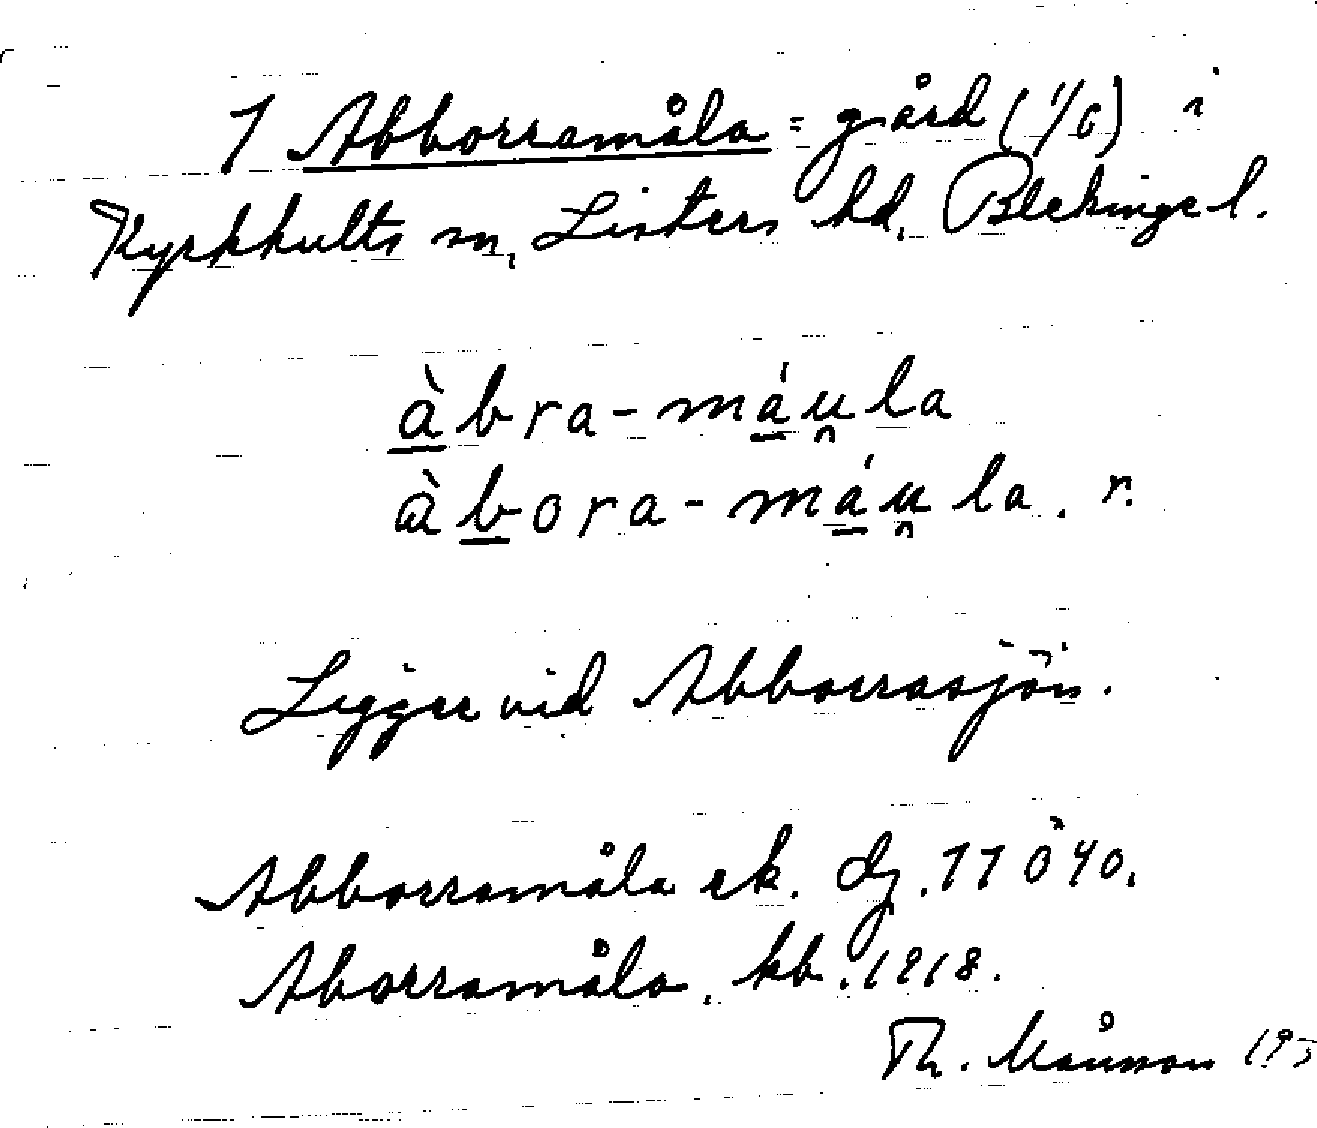 1 Abborramåla = gård (1/6) i
Kyrkhults sn, Listers hd. Blekinge l.
àbra-máu̯la
àbora-máu̯la. r.
Ligger vid Abborrasjön.
Abborramåla ek. dg. 11 040.
Aborramåla, kb. 1918.
Th. Månsson 193